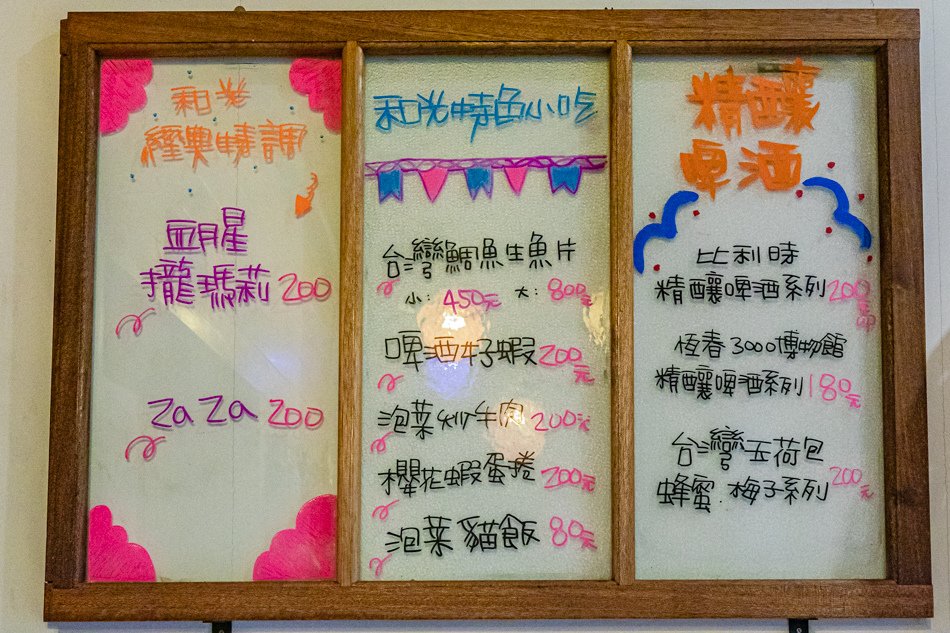 和光
經典特調
血腥
攏瑪莉 200
ZaZa 200
和光特色小吃
台灣鯛魚生魚片
小：450元 大：800元
啤酒 蝦 200元
泡菜炒牛肉 200元
櫻花蝦蛋捲 200元
泡菜貓飯 80元
精釀
啤酒
比利時
精釀啤酒系列 200
恆春3000博物館
精釀啤酒系列 180元
台灣玉荷包
蜂蜜.梅子系列 200元